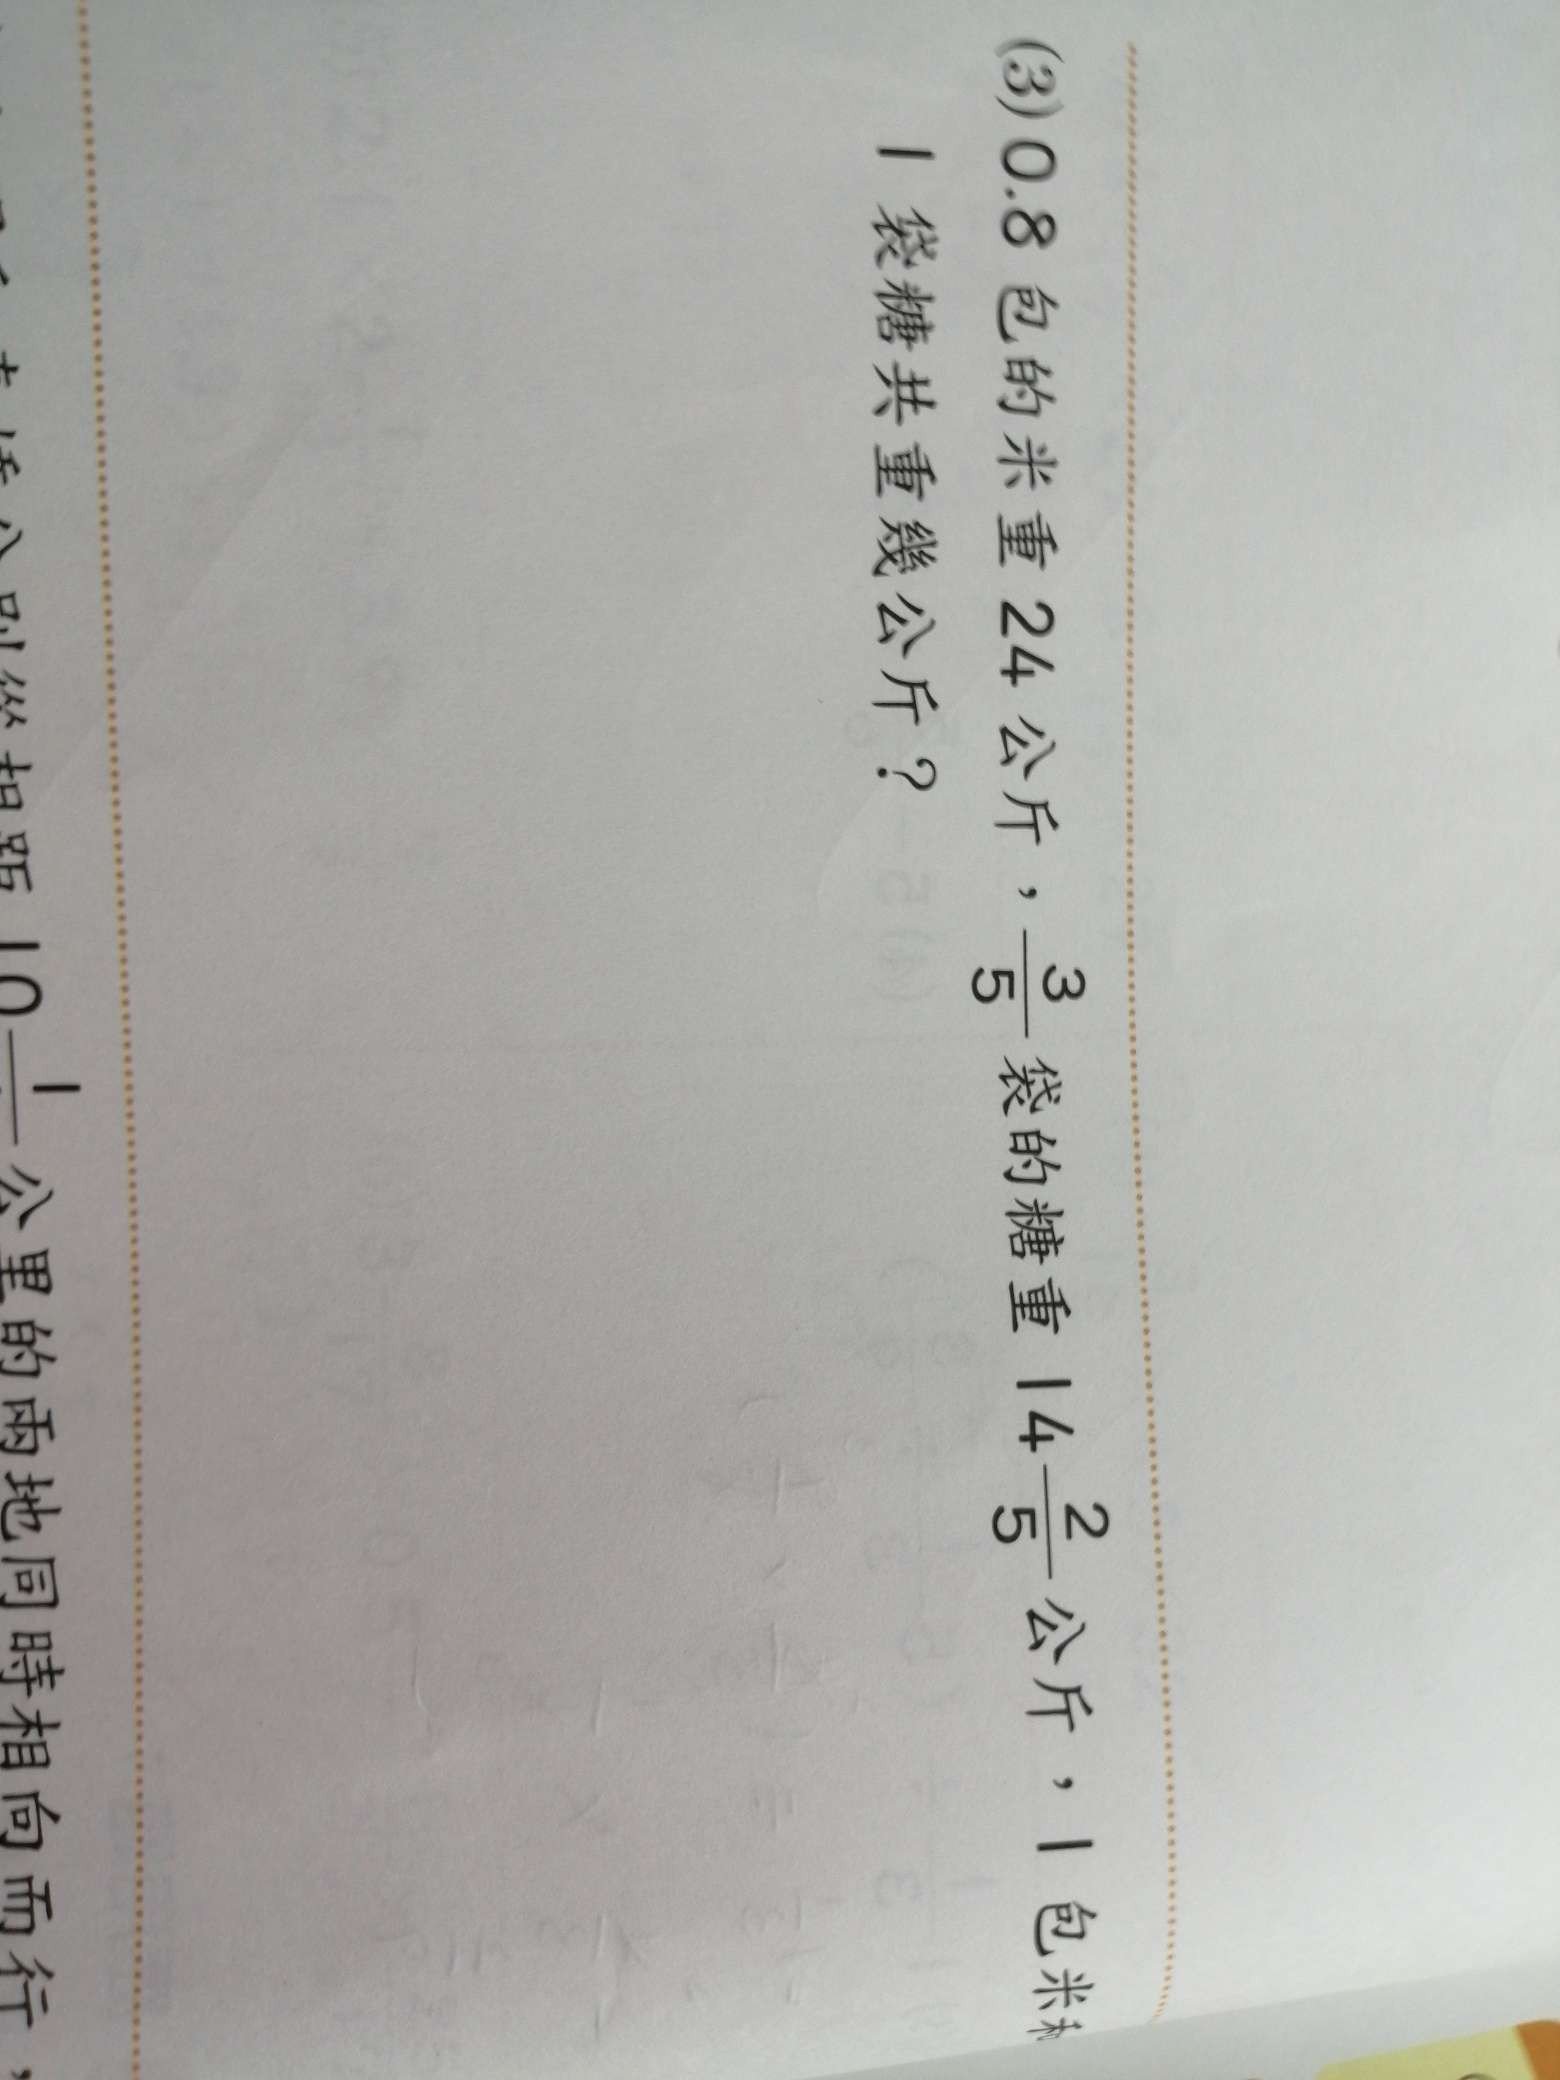 (3) 0.8 包的米重 24 公斤，3/5 袋的糖重 14 2/5 公斤，1 包米和
1 袋糖共重幾公斤？
分別從相距 10 1/ 公里的兩地同時相向而行，